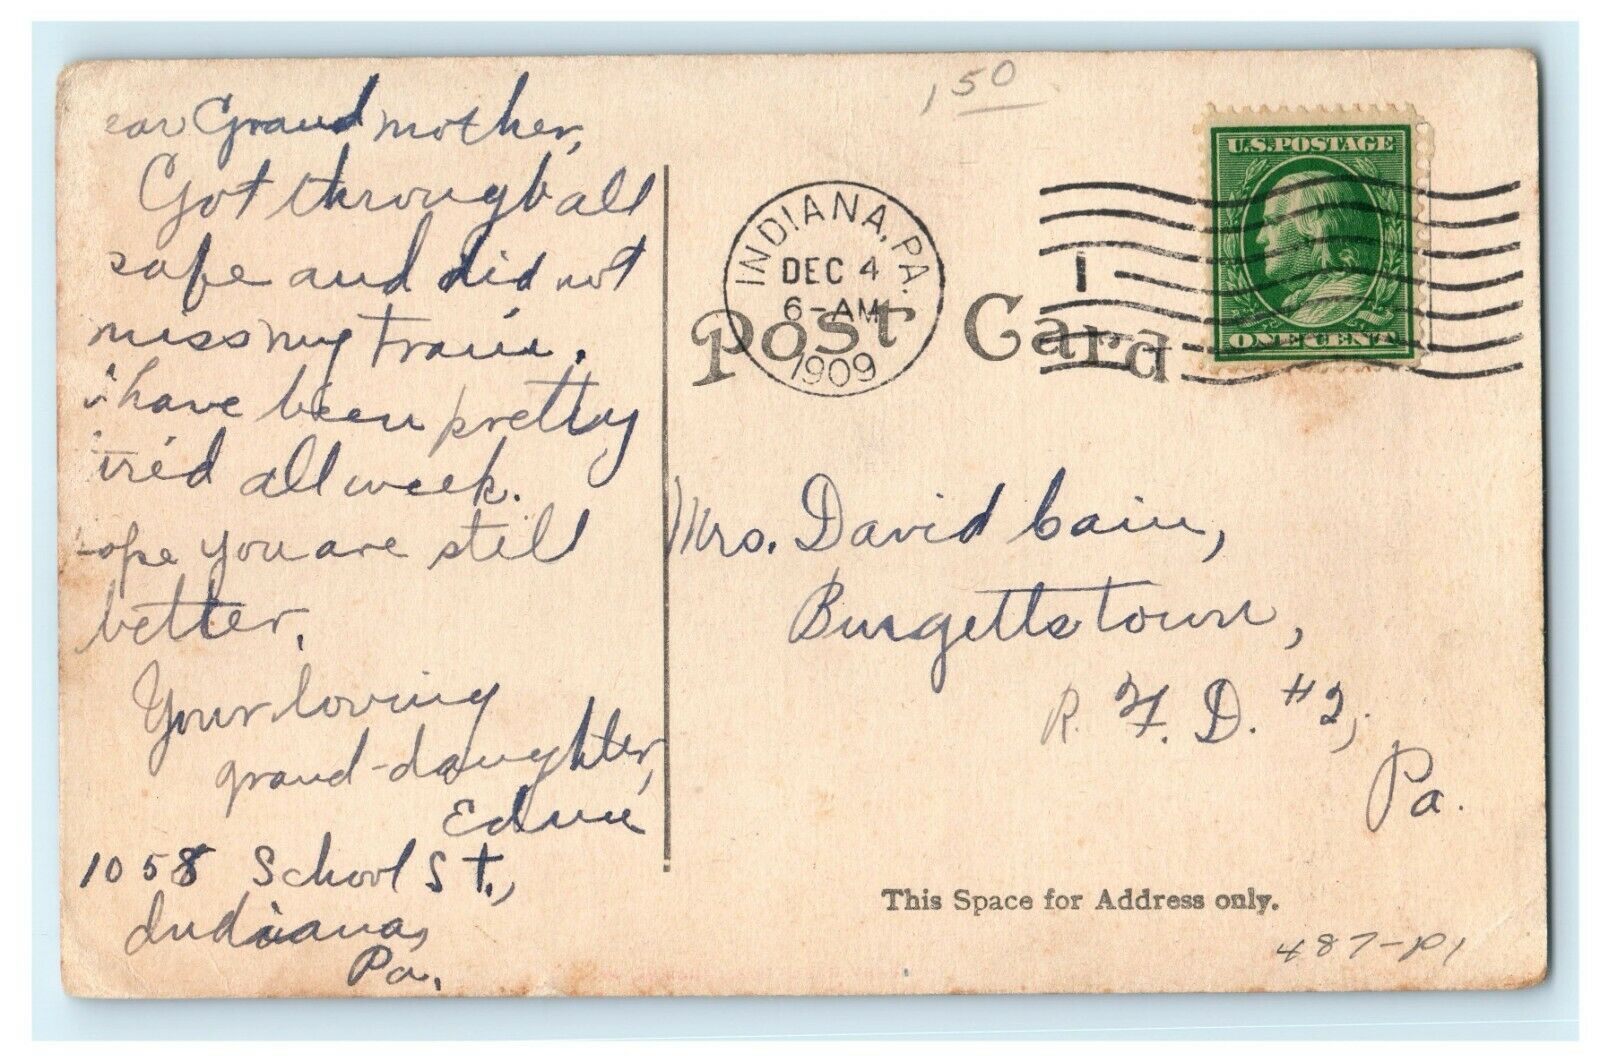 ear Grandmother,
Got through all
safe and did not
miss my train.
I have been pretty
tired all week.
ope you are still
better.
Your loving
grand-daughter,
Ednie
1058 School St.,
Indiana,
Pa.
150
INDIANA, PA.
DEC 4
6-AM
1909
1
U.S. POSTAGE
ONE CENT
Post Card
Mrs. David Cain,
Burgettstown,
R. F. D. #2,
Pa.
This Space for Address only.
487-P1